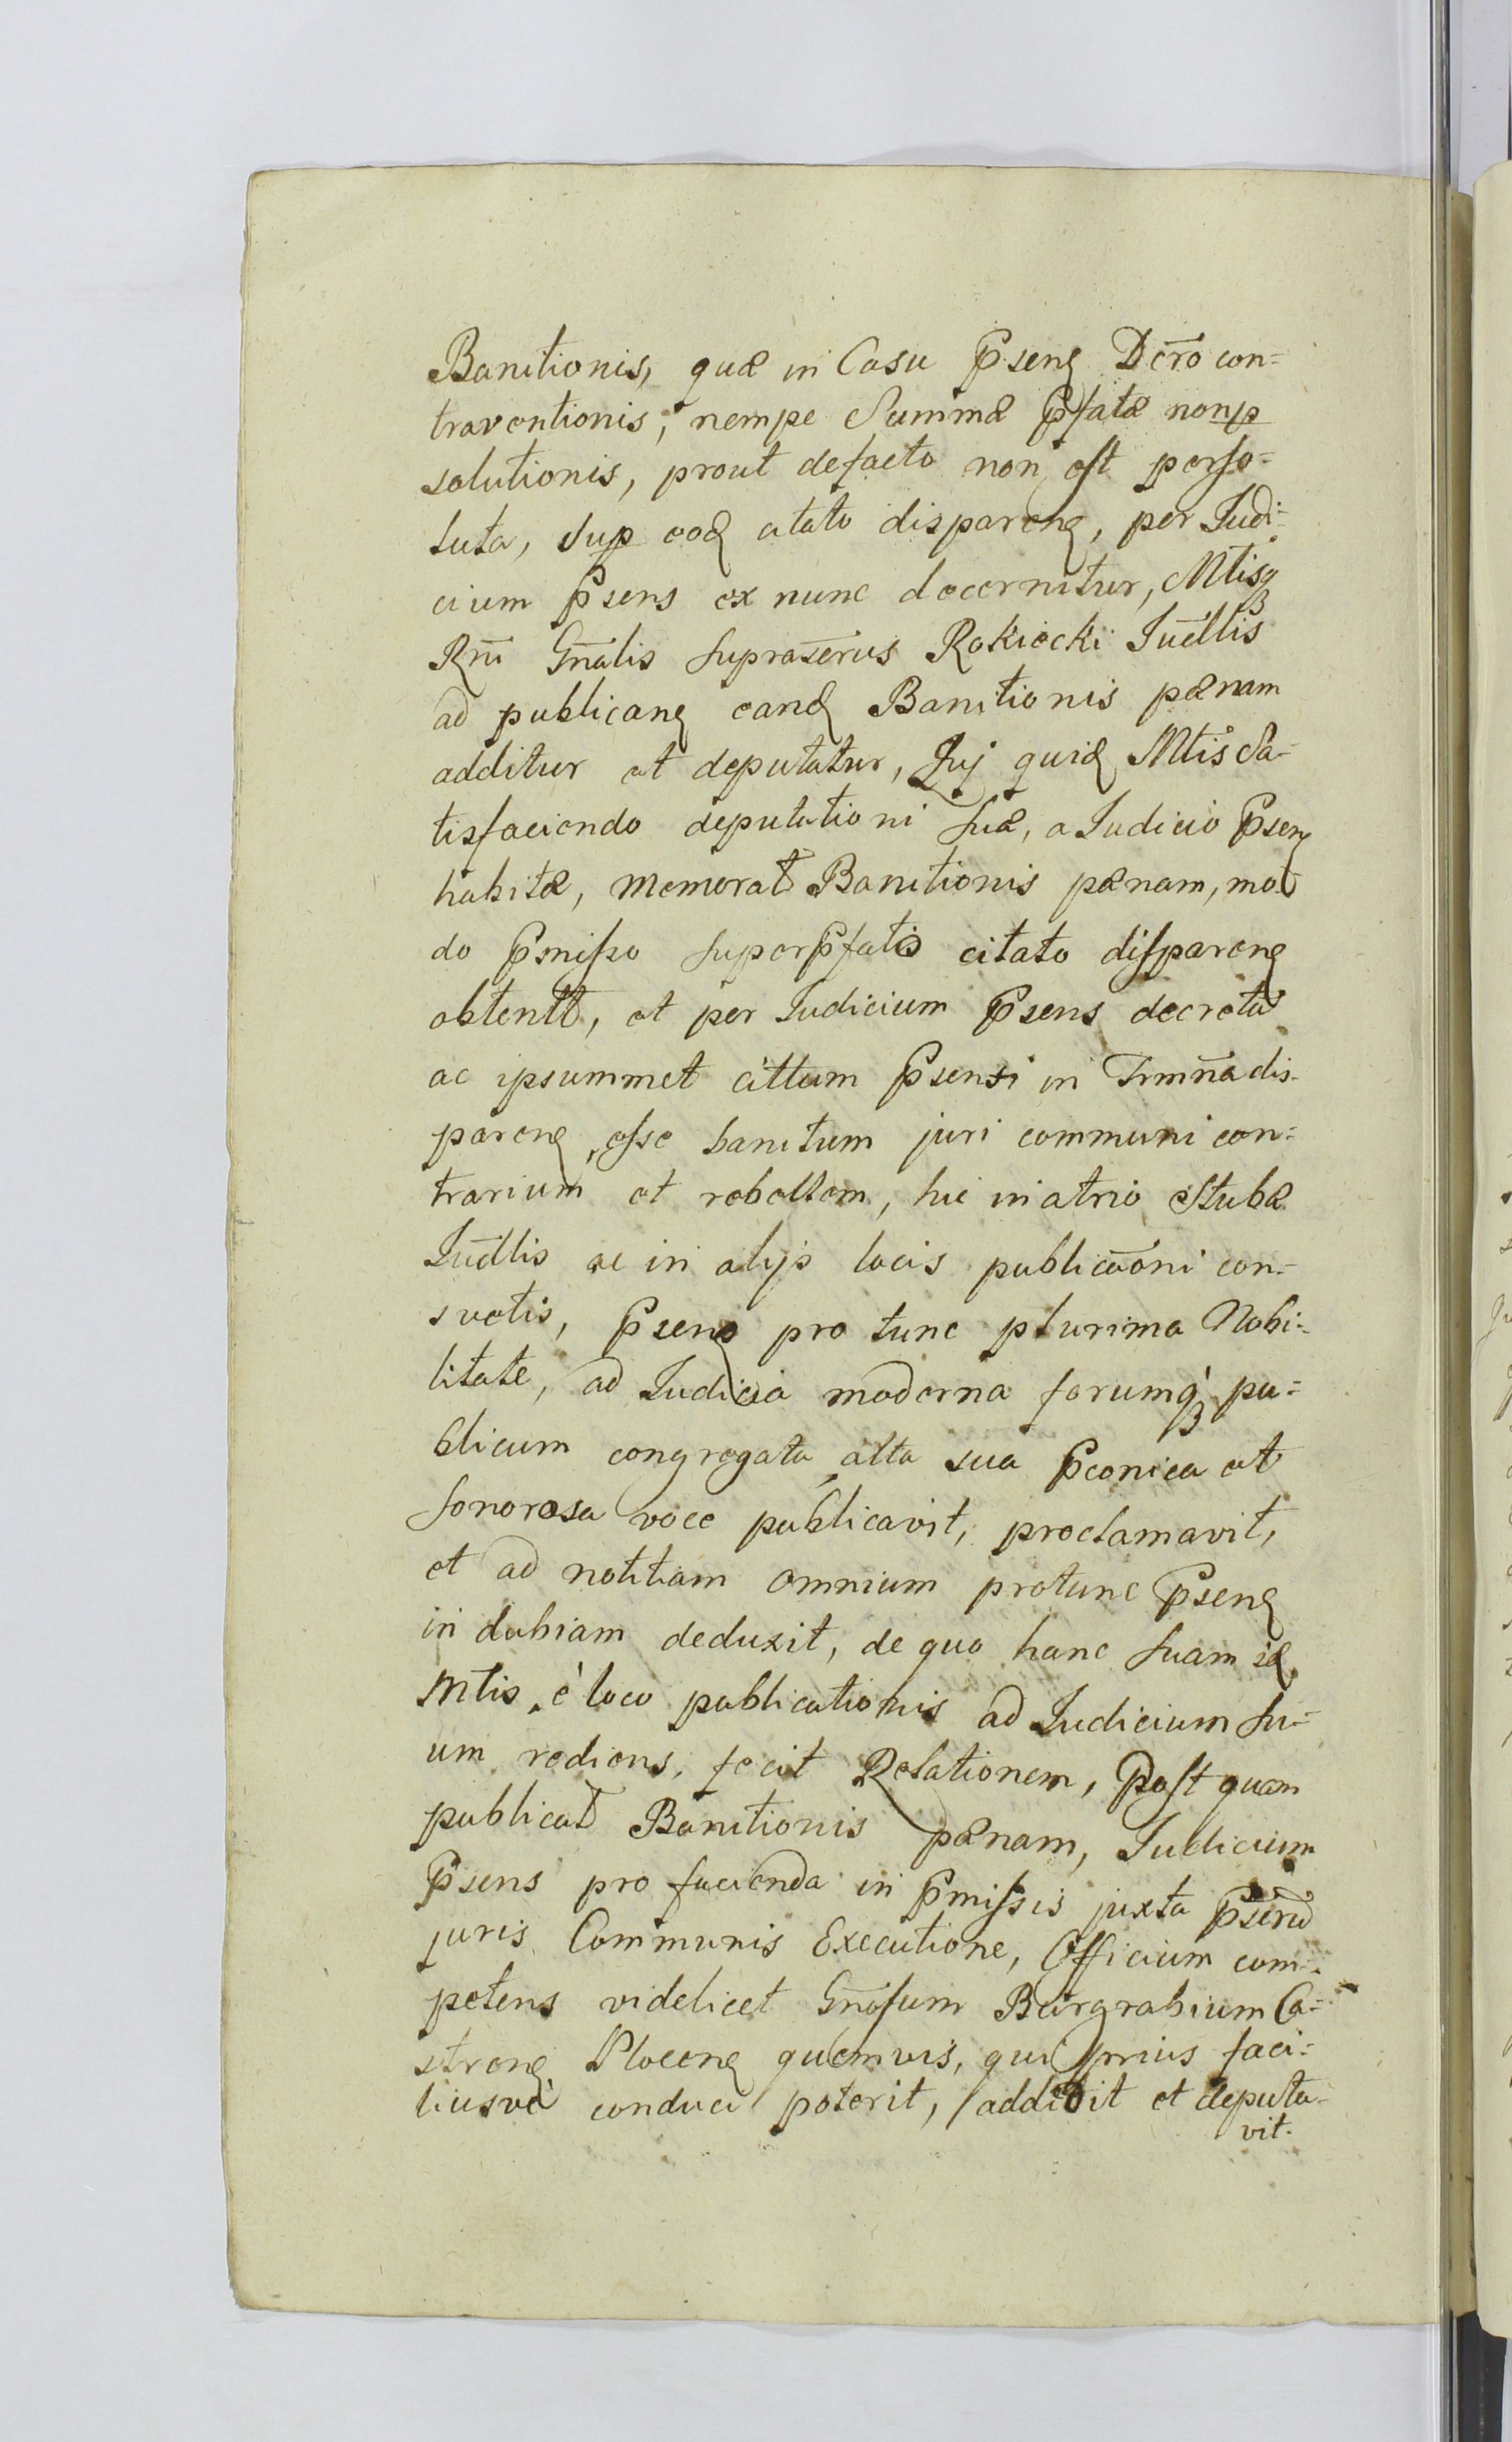 Banitionis, quæ in Casu Pſenꝭ Dcr̄o con=
traventionis, nempe Summæ Pfatæ nonp
solutionis, prout defacto non eſt perſo=
luta, Sup eodꝭ citato disparenꝭ, per Judi=
cium Psens ex nunc decernitur, Mtisqꝫ
Rn̄i Gn̄alis supraſc̄rius Rokicki Jud̄llis
ad publicanꝭ eandꝭ Banitionis pænam
additur et deputatur, Quj quidꝭ Mtis Sa=
tisfaciendo deputationi suæ, a Judicio Psenꝭ
habitæ, memorat Banitionis pænam, mo
do Pmiſso superPfatō citato diſparenꝭ
obtentt, et per Judicium Psens decretā
ac ipsummet cittum Psensi in Trmn̄a dis=
parenꝭ, eſse banitum juri communi con=
trarium et rebellem, hic in atrio Stubæ
Jud̄llis ac in alijs locis publicāoni con=
svetis, Psenꝭ pro tunc plurima Nobi=
litate, ad Judicia moderna forumqꝫ pu=
blicum congregata, alta sua Pconica et
sonorosa voce publicavit, proclamavit,
et ad notitiam omnium protunc Psenꝭ
in dubiam deduxit, de quo hanc suam idꝭ
Mtis, è loco publicationis ad Judicium su=
um rediens, fecit Relationem, Poſt quam
publicat Banitionis pænam, Judicium
Psens pro facienda in Pmiſsis juxta Psc̄rū
juris Communis Executione, Officium com=
petens videlicet Gn̄oſum Burgrabium Ca=
strenꝭ Plocenꝭ quemvis, qui prius faci=
liusvè conduci poterit, addidit et deputa=
vit.